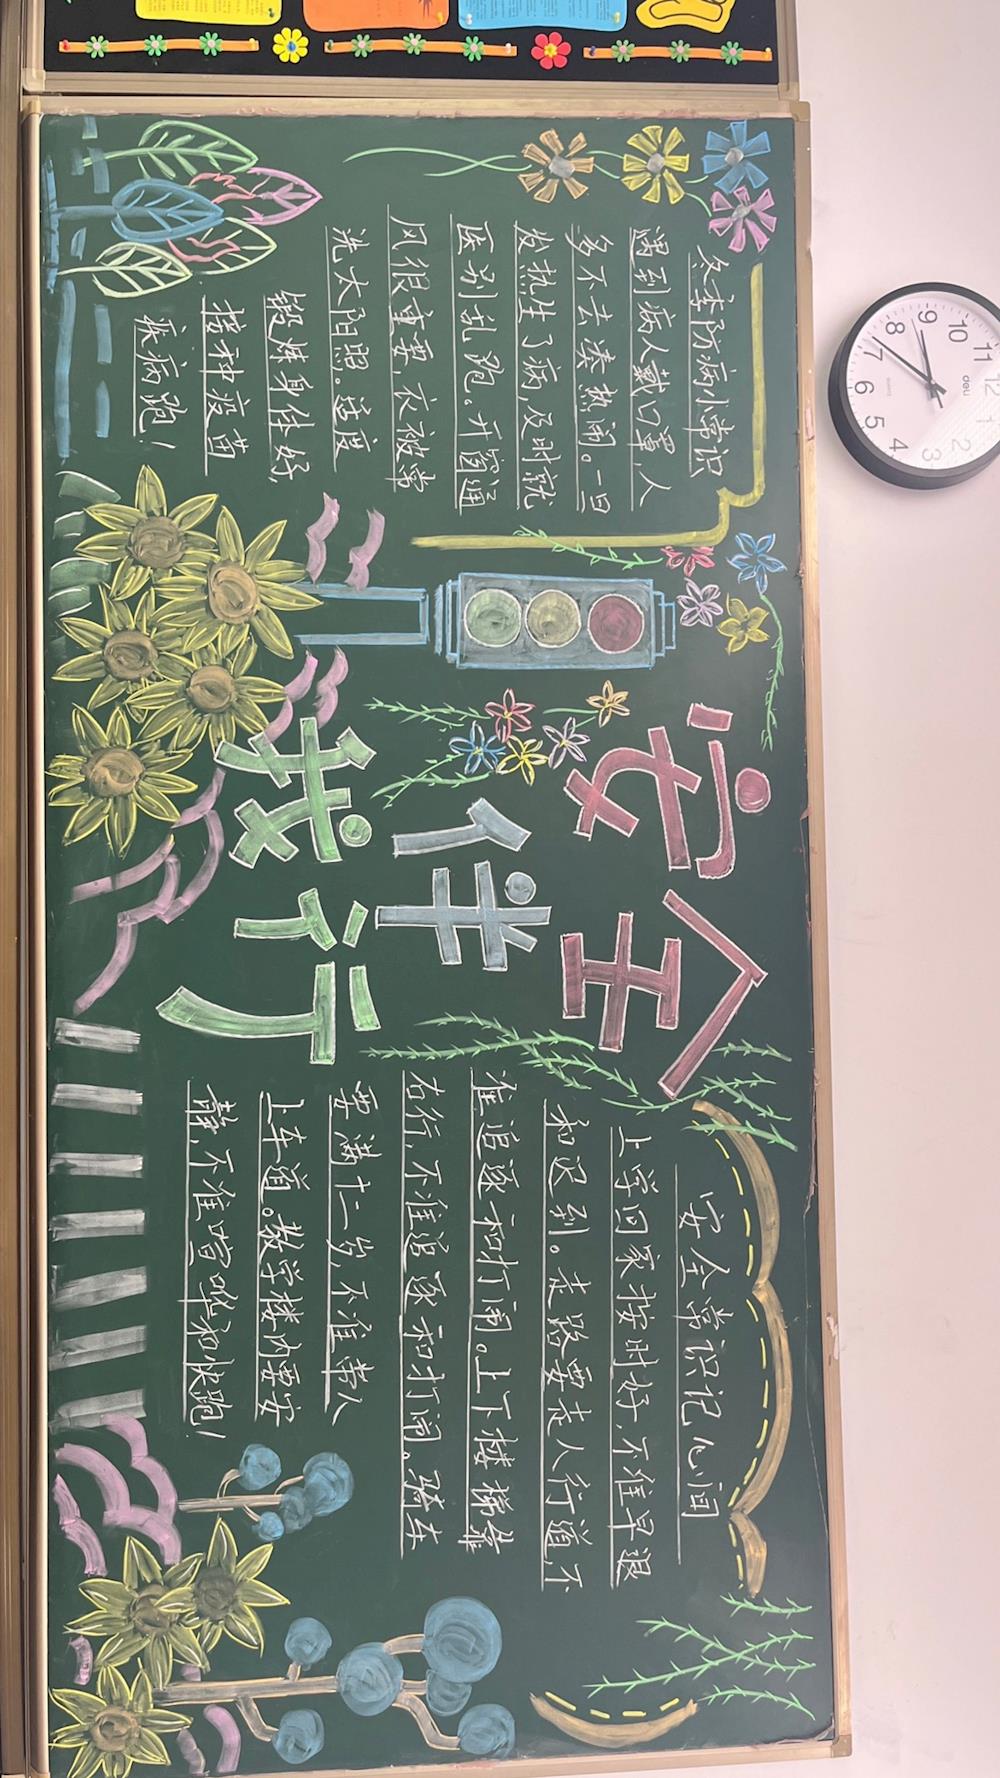 冬季防病小常识
遇到病人戴口罩,人
多不去凑热闹。一旦
发热生了病,及时就
医别乱跑。开窗通
风很重要,衣被常
洗太阳照。适度
锻炼身体好,
接种疫苗
疾病跑!
安全
伴
我行
安全常识记心间
上学回家按时好,不准早退
和迟到。走路要走人行道,不
准追逐和打闹。上下楼梯靠
右行,不准追逐和打闹。骑车
要满十二岁,不准带人
上车道。教学楼内要安
静,不准喧哗和快跑!
deli
12
1
2
3
4
5
6
7
8
9
10
11